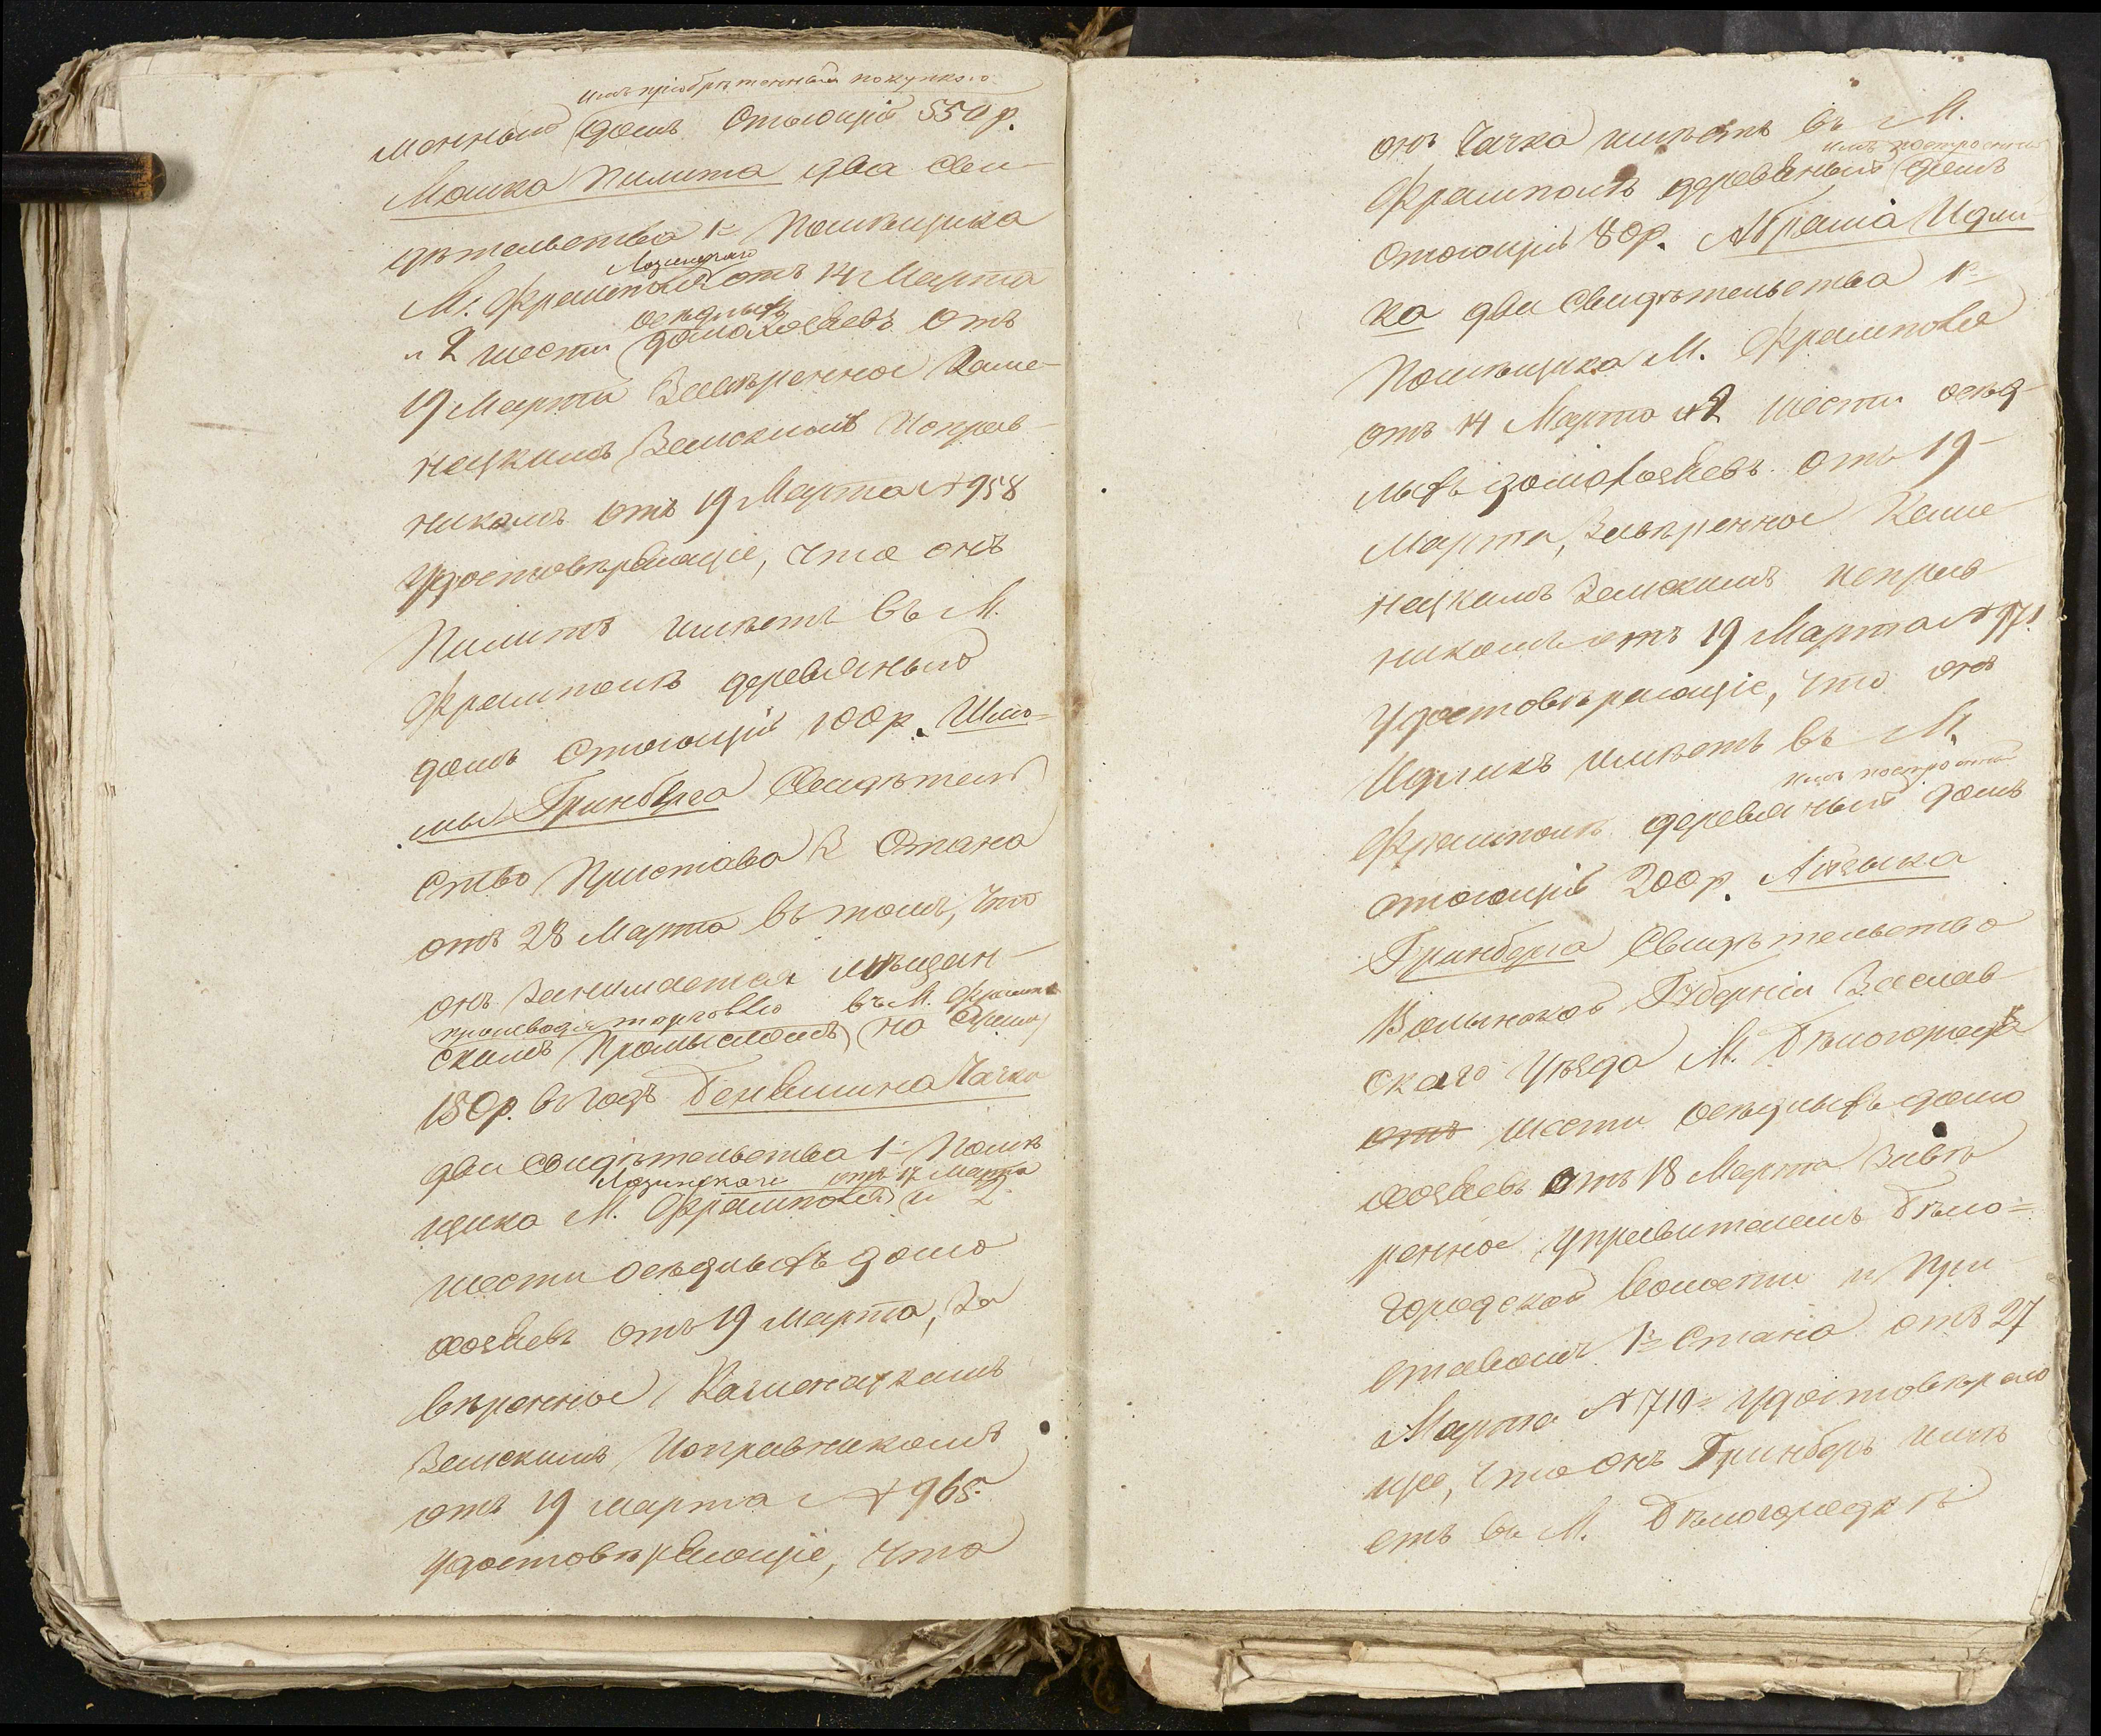 имъ пріобрѣтенный покупкою
менный домъ стоющій 550 р.
Мошка Пилита два сви-
дѣтельства 1е Помѣщика
Лозинскаго
М. Фрамполя отъ 14 Марта
осѣдлыхъ
и 2 шести домохозяевъ отъ
19 Марта Завѣренное Каме-
нецкимъ Земскимъ Исправ-
никомъ отъ 19 Марта № 958
Удостовѣряющіе, что онъ
Пилитъ имѣетъ въ М.
Фрамполѣ деревяный
домъ стоющій 100 р. Шлю-
мы Гринберга Свидѣтель
ство Пристава 2 Стана
отъ 28 Марта въ томъ, что
онъ Занимается мѣщан-
производя торговлю въ М. Фрампо
скимъ Промысломъ на
150 р. въ годъ Беньямина Чачка
два свидѣтельства 1е Помѣ
Лозинскаго отъ 17 Марта
щика М. Фрамполя и 2
шести осѣдлыхъ домо
хозяевъ отъ 19 Марта, За
вѣренное Каменецкимъ
Земскимъ Исправникомъ
отъ 19 марта № 965.
удостовѣряющіе, что
онъ Чачка имѣетъ въ М.
имъ построенный
Фрамполѣ деревяный домъ
стоющій 80 р. Абрама Идли-
ка два свидѣтельства 1е
Помѣщика М. Фрамполя
отъ 14 Марта и 2 шести осѣд-
лыхъ домохозяевъ отъ 19
Марта, Завѣренное Каме-
нецкимъ Земскимъ исправ
никомъ отъ 19 Марта № 971
Удостовѣряющіе, что онъ
Идликъ имѣетъ въ М.
имъ построенный
Фрамполѣ деревяный домъ
стоющій 200 р.
Гринберга Свидѣтельство
Волынской Губерніи Заслав-
скаго уѣзда М. Бѣлогородка
отъ шести осѣдлыхъ домо
хозяевъ отъ 18 Марта Завѣ
ренное управителемъ Бѣло-
городской волости и При-
ставомъ 1го Стана отъ 27
Марта № 1719 удостовѣряю
щее, что онъ Гринберъ имѣ
етъ въ М. Бѣлогородкѣ